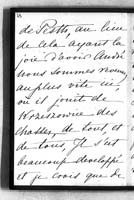 de Pesth, au lieu
de cela ayant la
joie d'avoir André
nous sommes revenus
au plus vite ici,
où il jouit de
des
chasses, de tout, et
de tous, Il s'est
beaucoup développé
et je crois que de